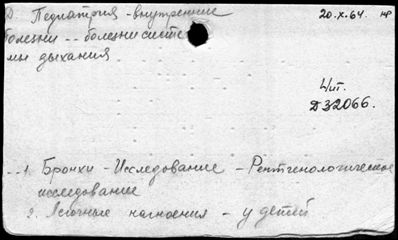 Д. Педиатрия - внутренние
болезни -- болезни систе
мы дыхания
20.X.64 нр
Чит.
Д32066.
..1. Бронхи - Исследование - Рентгенологическое
исследование
2. Легочные нагноения - у детей